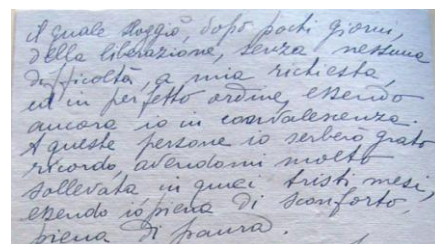 il quale sloggiò, dopo pochi giorni,
della liberazione, senza nessuna
difficoltà, a mia richiesta,
ed in perfetto ordine, essendo
ancora io in convalescenza.
A queste persone io serberò grato
ricordo, avendomi molto
sollevata in quei tristi mesi,
essendo io piena di sconforto,
piena di paura.